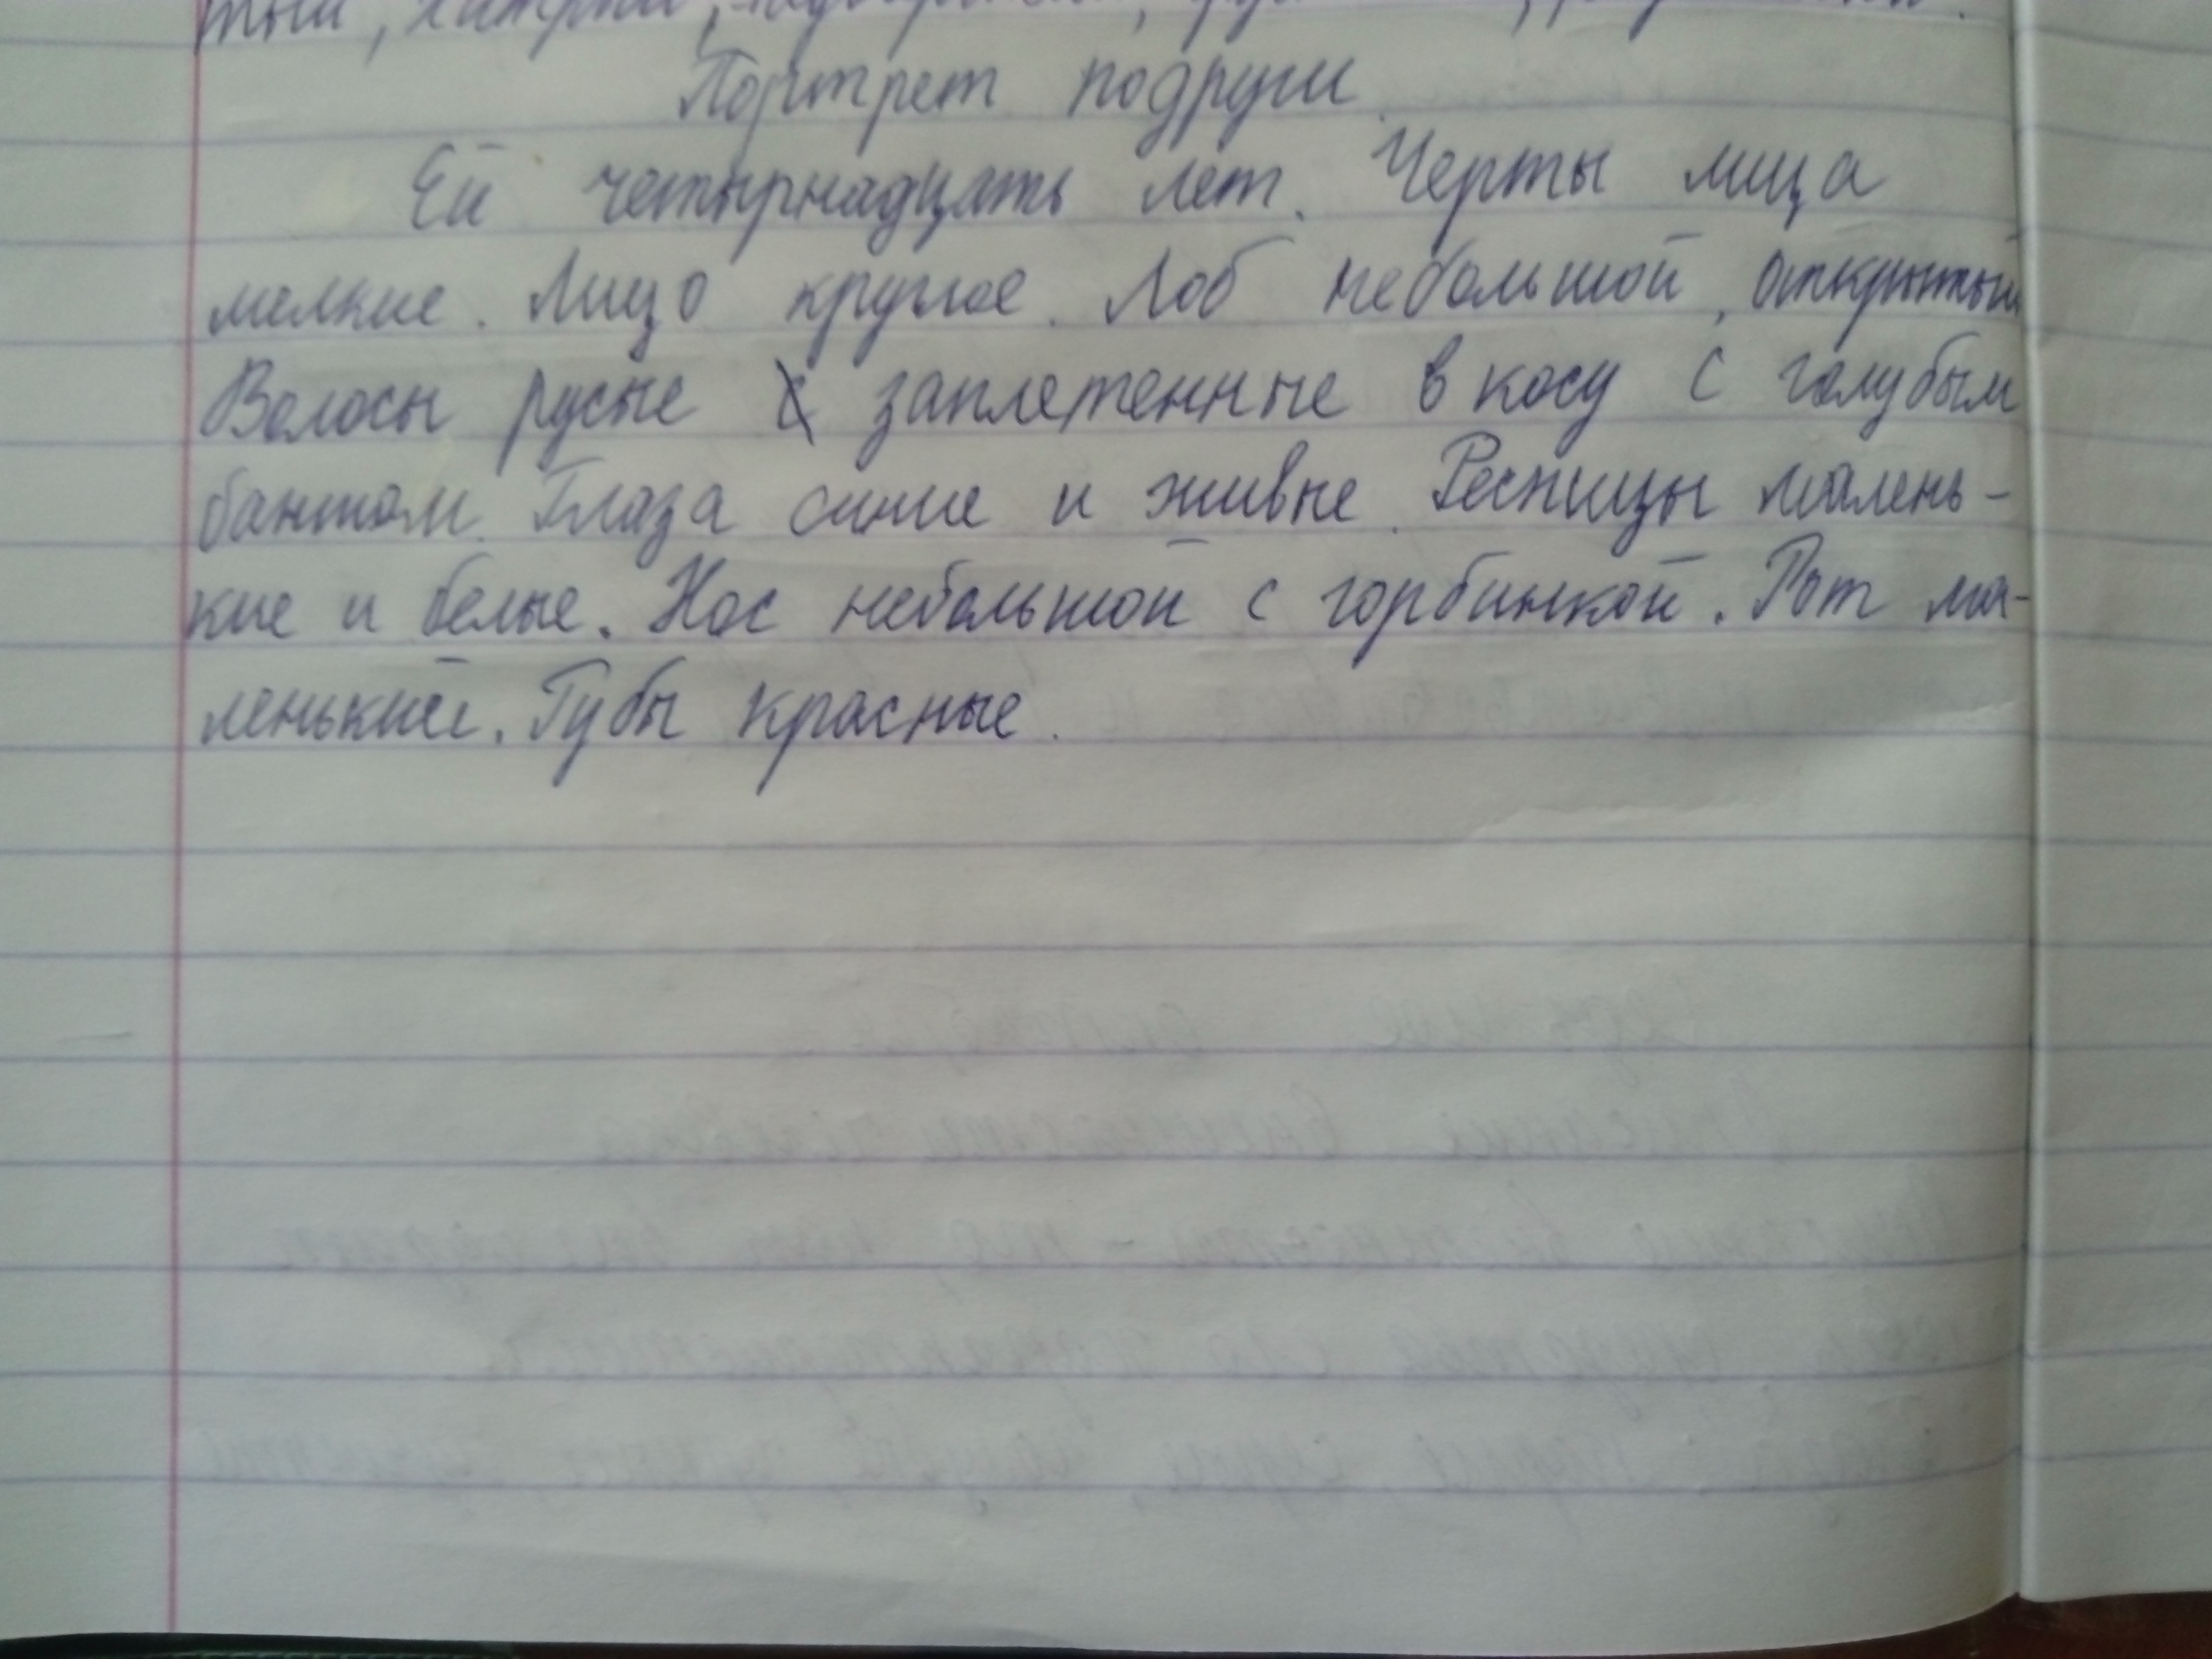 Портрет подруги
Ей четырнадцать лет. Черты лица
мелкие. Лицо круглое. Лоб небольшой,
Волосы русые заплетенные в косу с голубым
бантом. Глаза синие и живые. Ресницы малень-
кие и белые. Нос небольшой с горбинкой. Рот ма-
ленький. Губы красные.